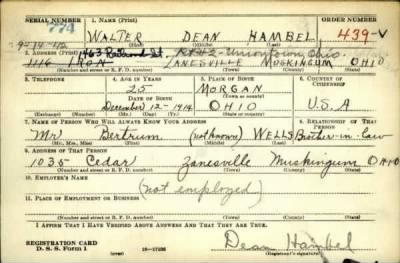 SERIAL NUMBER 1. NAME (Print) ORDER NUMBER
774 WALTER DEAN HAMBEL 439-V
(First) (Middle) (Last)
9-14-42 463 Railroad St. Rt#2-Uniontown, Ohio.
2. ADDRESS (Print)
1116 IRON ZANESVILLE MUSKINGUM OHIO
(Number and street or R. F. D. number) (Town) (County) (State)
3. TELEPHONE 4. AGE IN YEARS 5. PLACE OF BIRTH 6. COUNTRY OF CITIZENSHIP
25 MORGAN
DATE OF BIRTH (Town or county)
December-12-1914 OHIO U.S.A
(Exchange) (Number) (Mo.) (Day) (Yr.) (State or country)
7. NAME OF PERSON WHO WILL ALWAYS KNOW YOUR ADDRESS 8. RELATIONSHIP OF THAT PERSON
Mr Bertrum (not known) WELLS Brother-in-law
(Mr., Mrs., Miss) (First) (Middle) (Last)
9. ADDRESS OF THAT PERSON
1035 Cedar Zanesville Muskingum OHIO
(Number and street or R. F. D. number) (Town) (County) (State)
10. EMPLOYER'S NAME
(not employed)
11. PLACE OF EMPLOYMENT OR BUSINESS
(Number and street or R. F. D. number) (Town) (County) (State)
I AFFIRM THAT I HAVE VERIFIED ABOVE ANSWERS AND THAT THEY ARE TRUE.
REGISTRATION CARD
D. S. S. Form 1 16-17105 Dean Hambel
(Registrant's signature)